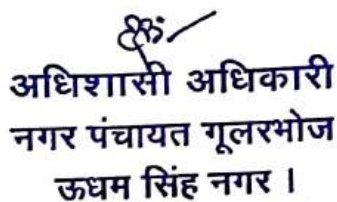 अधिशासी अधिकारी
नगर पंचायत गूलरभोज
ऊधम सिंह नगर ।